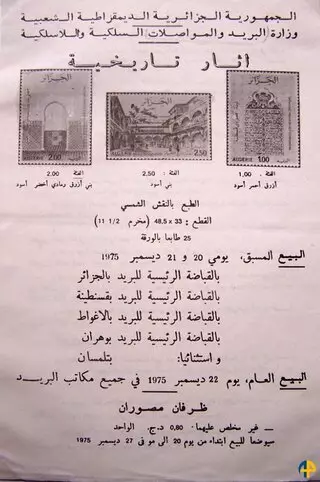 الجمهورية الجزائرية الديمقراطية الشعبية
وزارة البريد والمواصلات السلكية واللاسلكية
آثار تاريخية
الجزائر
ALGERIE 2.00
الجزائر
2.50
الجزائر
ALGERIE 1.00
الفئة : 1,00
أزرق أحمر أسود
الفئة : 2,50
بني أسود
الفئة : 2.00
أزرق بني ورمادي أخضر أسود
الطبع بالنقش الشمسي
القطع : 33 x 48,5 (مخرم 1/2 11)
25 طابعا بالورقة
البيع المسبق، يومي 20 و 21 ديسمبر 1975
بالقباضة الرئيسية للبريد بالجزائر
بالقباضة الرئيسية للبريد بقسنطينة
بالقباضة الرئيسية للبريد بالاغواط
بالقباضة الرئيسية للبريد بوهران
و استثنائيا: بتلمسان
البيع العام، يوم 22 ديسمبر 1975 في جميع مكاتب البريد
ظرفان مصوران
— غير مخلص عليهما: 0,80 د.ج. الواحد
سيوضعا للبيع ابتداء من يوم 20 الى موفى 27 ديسمبر 1975